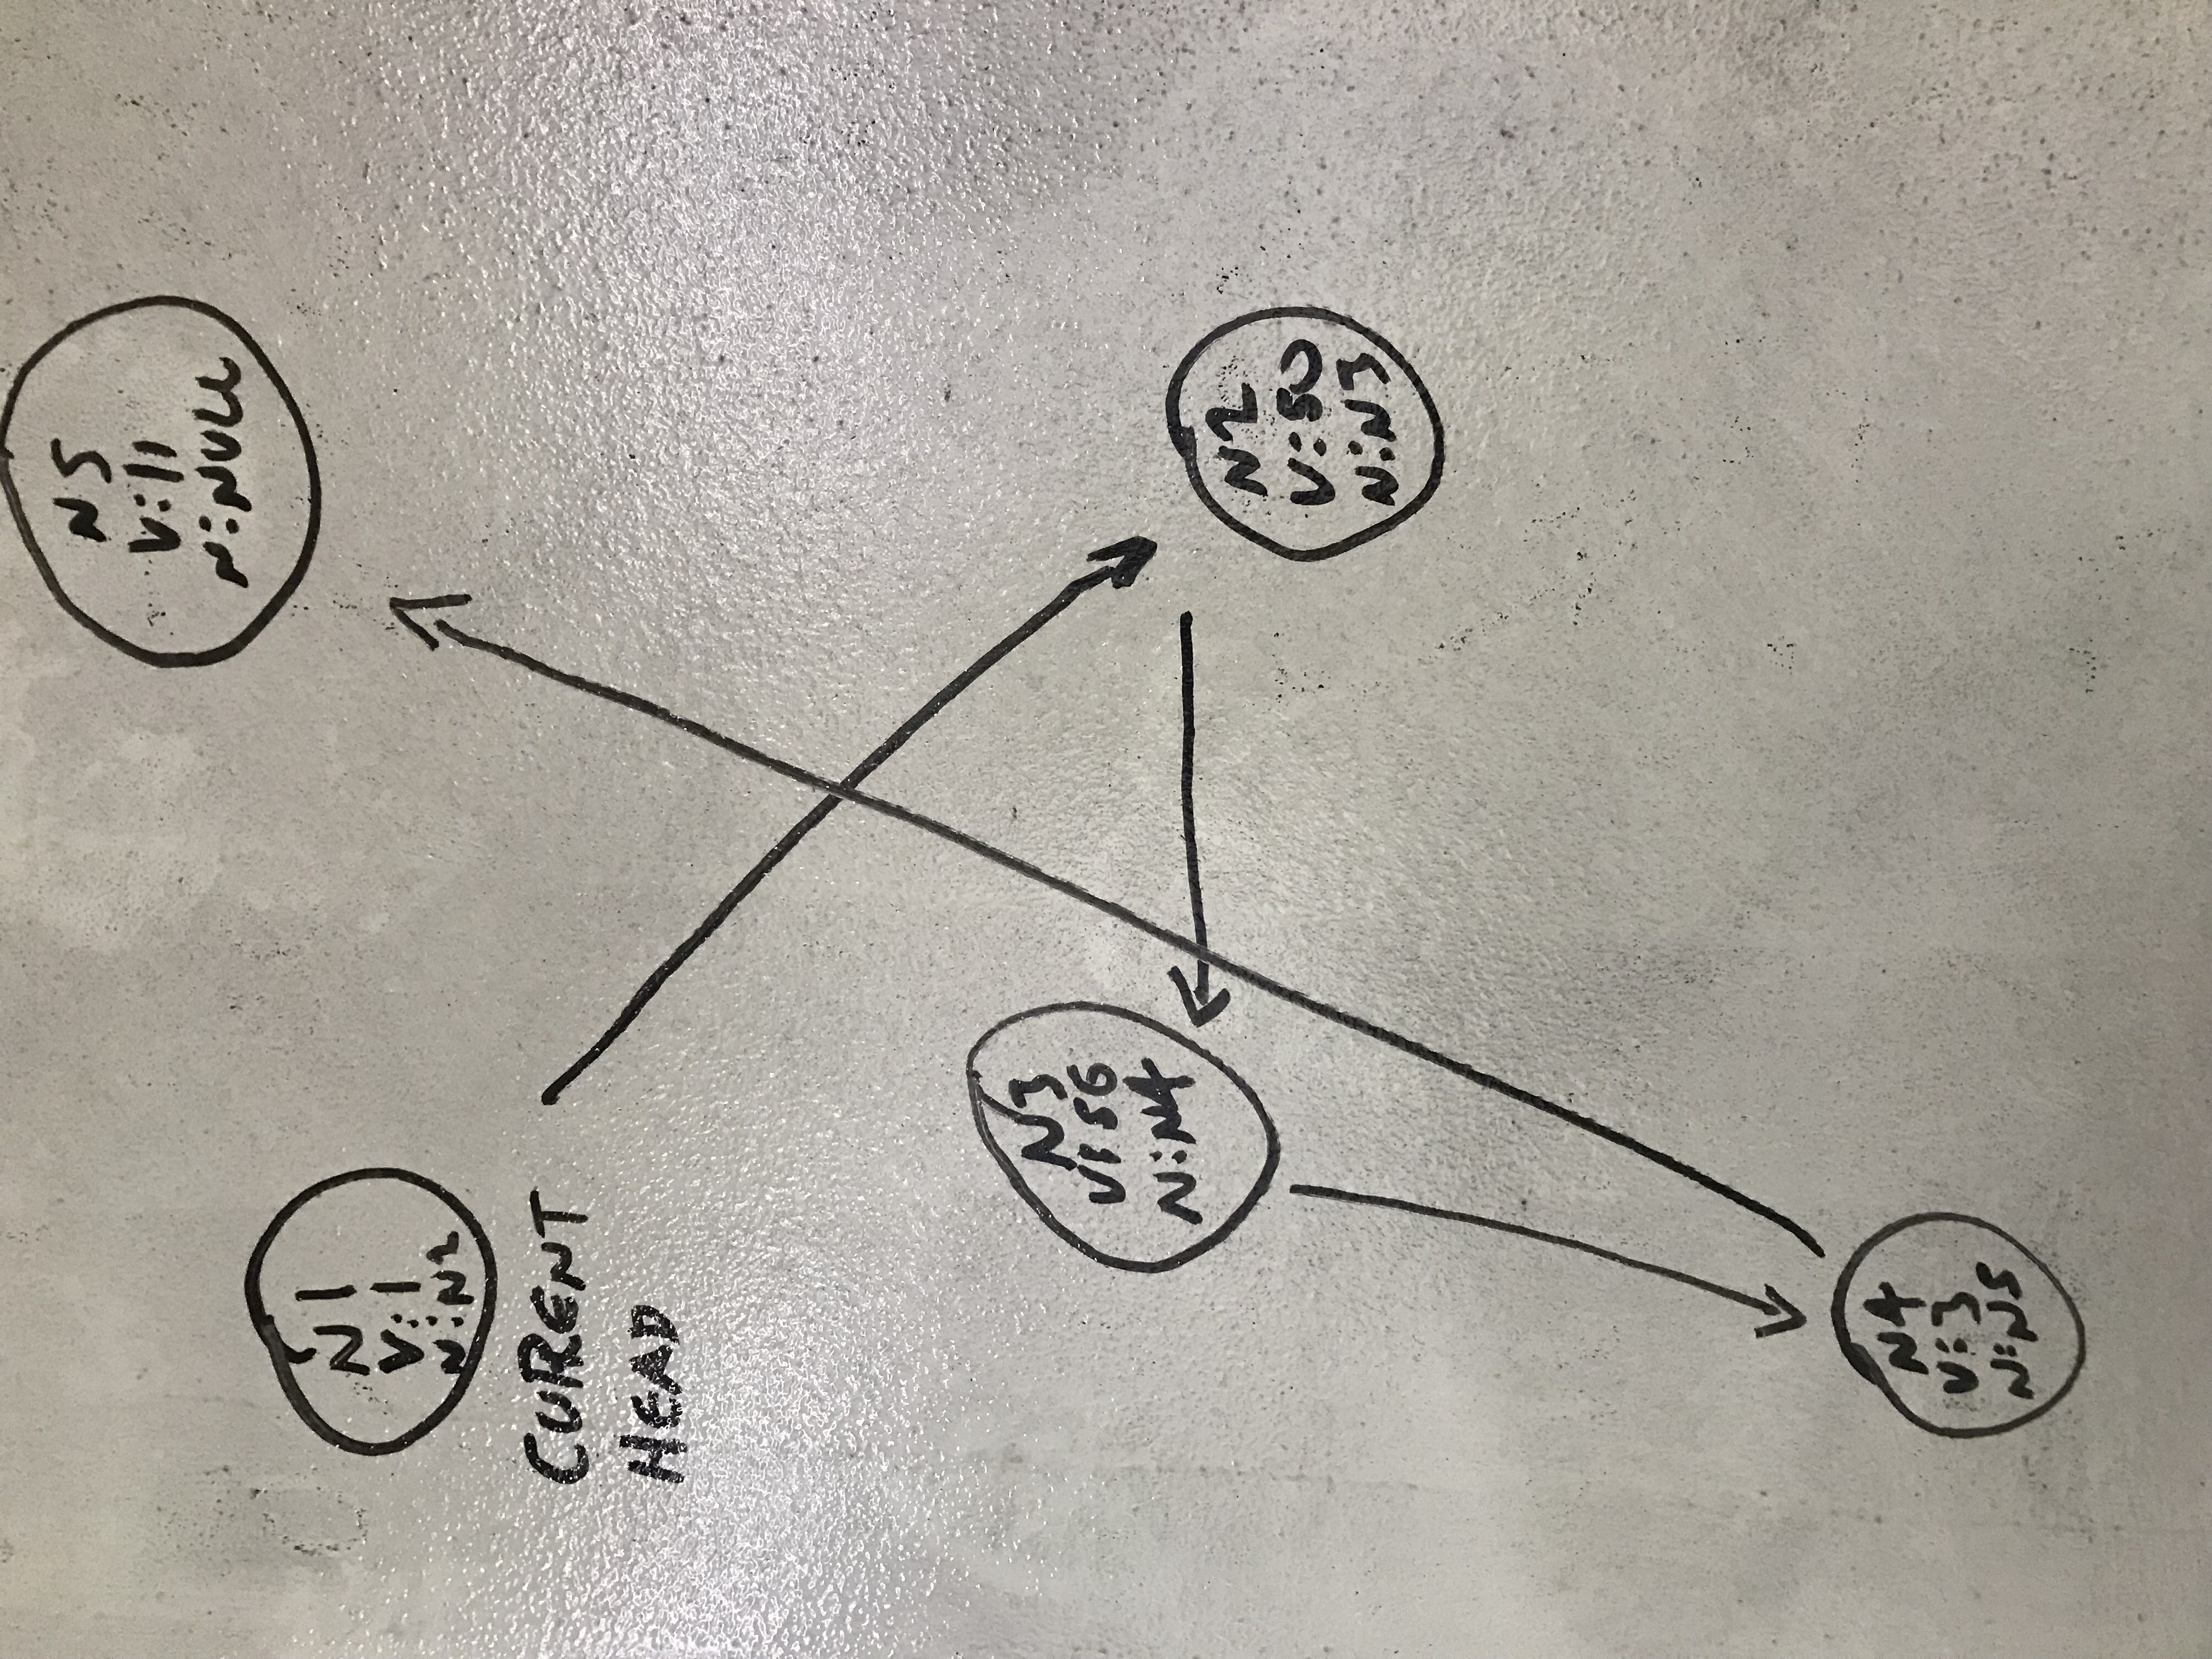 N5
V:11
N:NULL
N1
V:1
N:N2
CURENT
HEAD
N3
V:56
N:N4
N2
V:50
N:N3
N4
V:3
N:N5